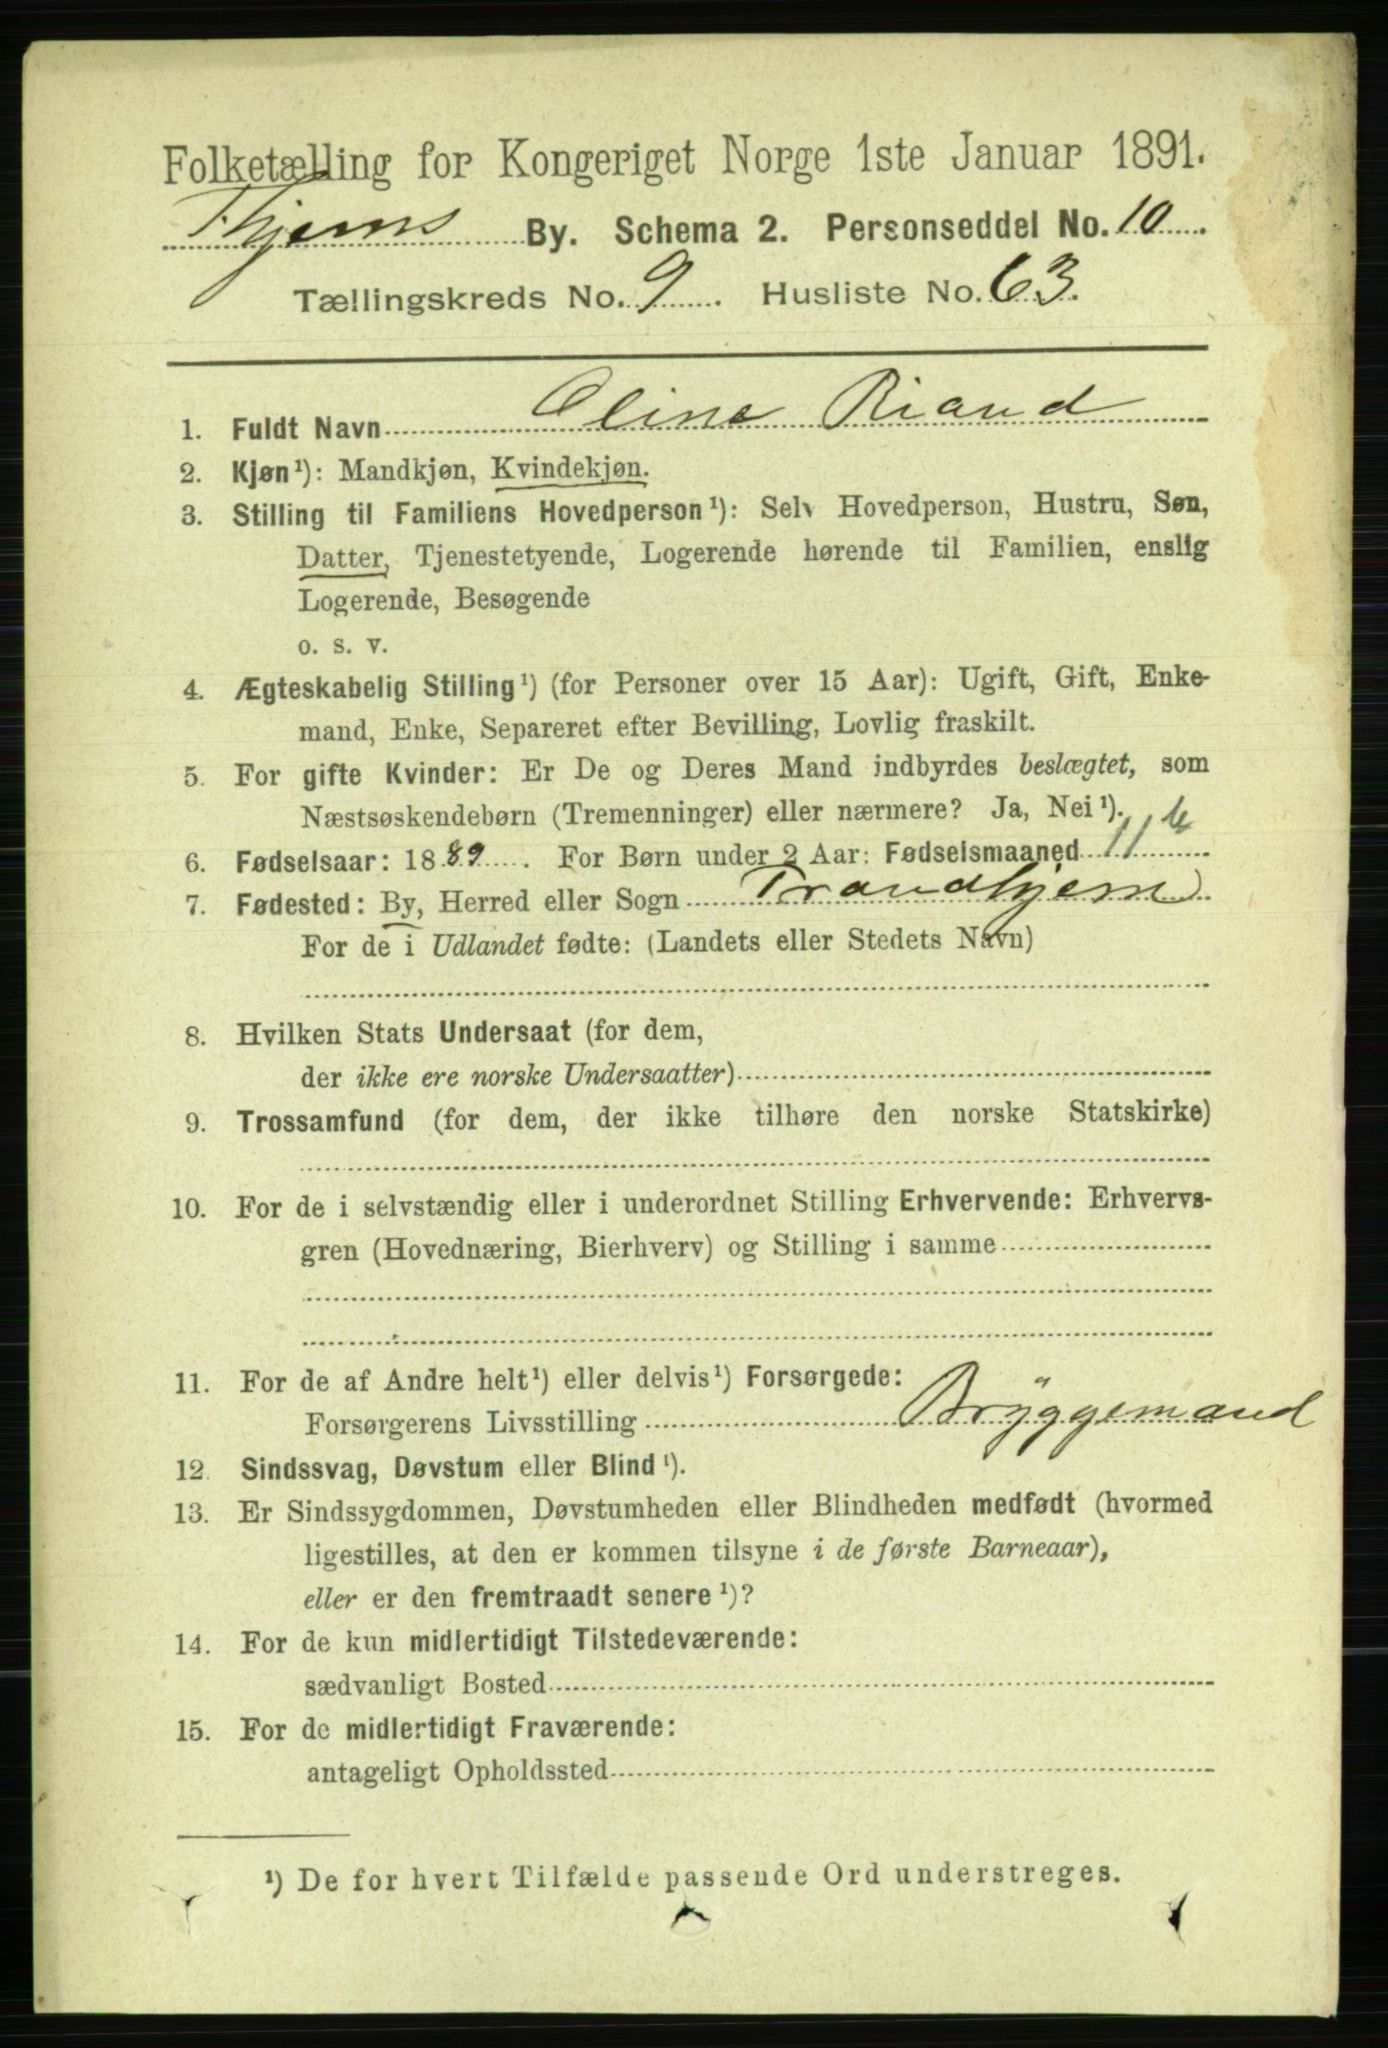 Folketælling for Kongeriget Norge 1ste Januar 1891.
Thjems By. Schema 2. Personseddel No. 10
Tællingskreds No. 9. Husliste No. 63.
1. Fuldt Navn Oline Riand
2. Kjøn¹): Mandkjøn, Kvindekjøn.
3. Stilling til Familiens Hovedperson¹): Selv Hovedperson, Hustru, Søn,
Datter, Tjenestetyende, Logerende hørende til Familien, enslig
Logerende, Besøgende
o. s. v.
4. Ægteskabelig Stilling¹) (for Personer over 15 Aar): Ugift, Gift, Enke-
mand, Enke, Separeret efter Bevilling, Lovlig fraskilt.
5. For gifte Kvinder: Er De og Deres Mand indbyrdes beslægtet, som
Næstsøskendebørn (Tremenninger) eller nærmere? Ja, Nei¹).
6. Fødselsaar: 1889. For Børn under 2 Aar: Fødselsmaaned 11
7. Fødested: By, Herred eller Sogn Trondhjem
For de i Udlandet fødte: (Landets eller Stedets Navn)
8. Hvilken Stats Undersaat (for dem,
der ikke ere norske Undersaatter)
9. Trossamfund (for dem, der ikke tilhøre den norske Statskirke)
10. For de i selvstændig eller i underordnet Stilling Erhvervende: Erhvervs-
gren (Hovednæring, Bierhverv) og Stilling i samme
11. For de af Andre helt¹) eller delvis¹) Forsørgede:
Forsørgerens Livsstilling Brÿggemand
12. Sindssvag, Døvstum eller Blind¹).
13. Er Sindssygdommen, Døvstumheden eller Blindheden medfødt (hvormed
ligestilles, at den er kommen tilsyne i de første Barneaar),
eller er den fremtraadt senere¹)?
14. For de kun midlertidigt Tilstedeværende:
sædvanligt Bosted
15. For de midlertidigt Fraværende:
antageligt Opholdssted
¹) De for hvert Tilfælde passende Ord understreges.